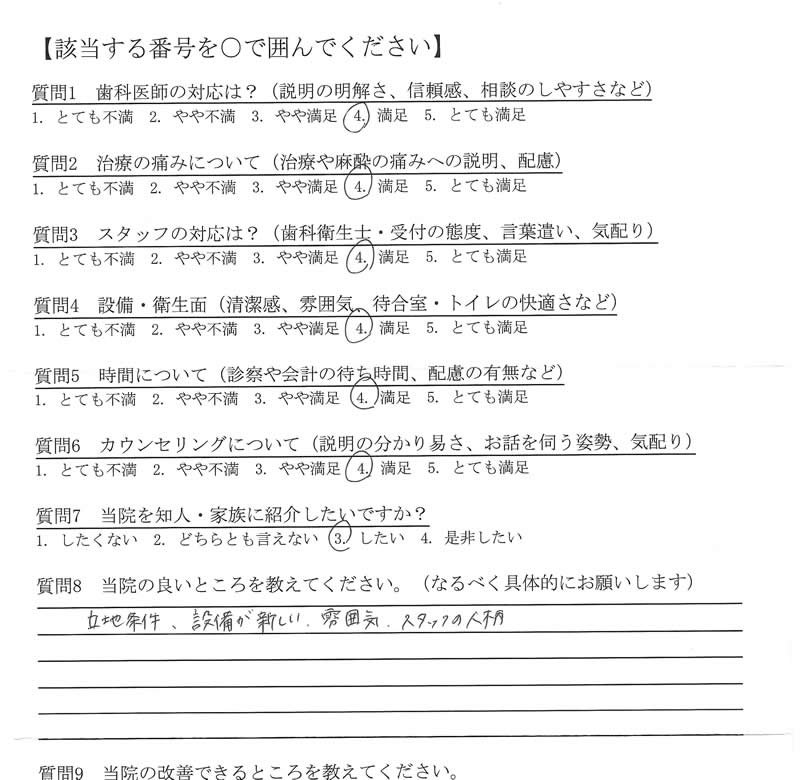 【該当する番号を〇で囲んでください】
質問1　歯科医師の対応は？（説明の明解さ、信頼感、相談のしやすさなど）
1. とても不満　2. やや不満　3. やや満足　4. 満足　5. とても満足
質問2　治療の痛みについて（治療や麻酔の痛みへの説明、配慮）
1. とても不満　2. やや不満　3. やや満足　4. 満足　5. とても満足
質問3　スタッフの対応は？（歯科衛生士・受付の態度、言葉遣い、気配り）
1. とても不満　2. やや不満　3. やや満足　4. 満足　5. とても満足
質問4　設備・衛生面（清潔感、雰囲気、待合室・トイレの快適さなど）
1. とても不満　2. やや不満　3. やや満足　4. 満足　5. とても満足
質問5　時間について（診察や会計の待ち時間、配慮の有無など）
1. とても不満　2. やや不満　3. やや満足　4. 満足　5. とても満足
質問6　カウンセリングについて（説明の分かり易さ、お話を伺う姿勢、気配り）
1. とても不満　2. やや不満　3. やや満足　4. 満足　5. とても満足
質問7　当院を知人・家族に紹介したいですか？
1. したくない　2. どちらとも言えない　3. したい　4. 是非したい
質問8　当院の良いところを教えてください。（なるべく具体的にお願いします）
立地条件、設備が新しい、雰囲気、スタッフの人柄
質問9　当院の改善できるところを教えてください。